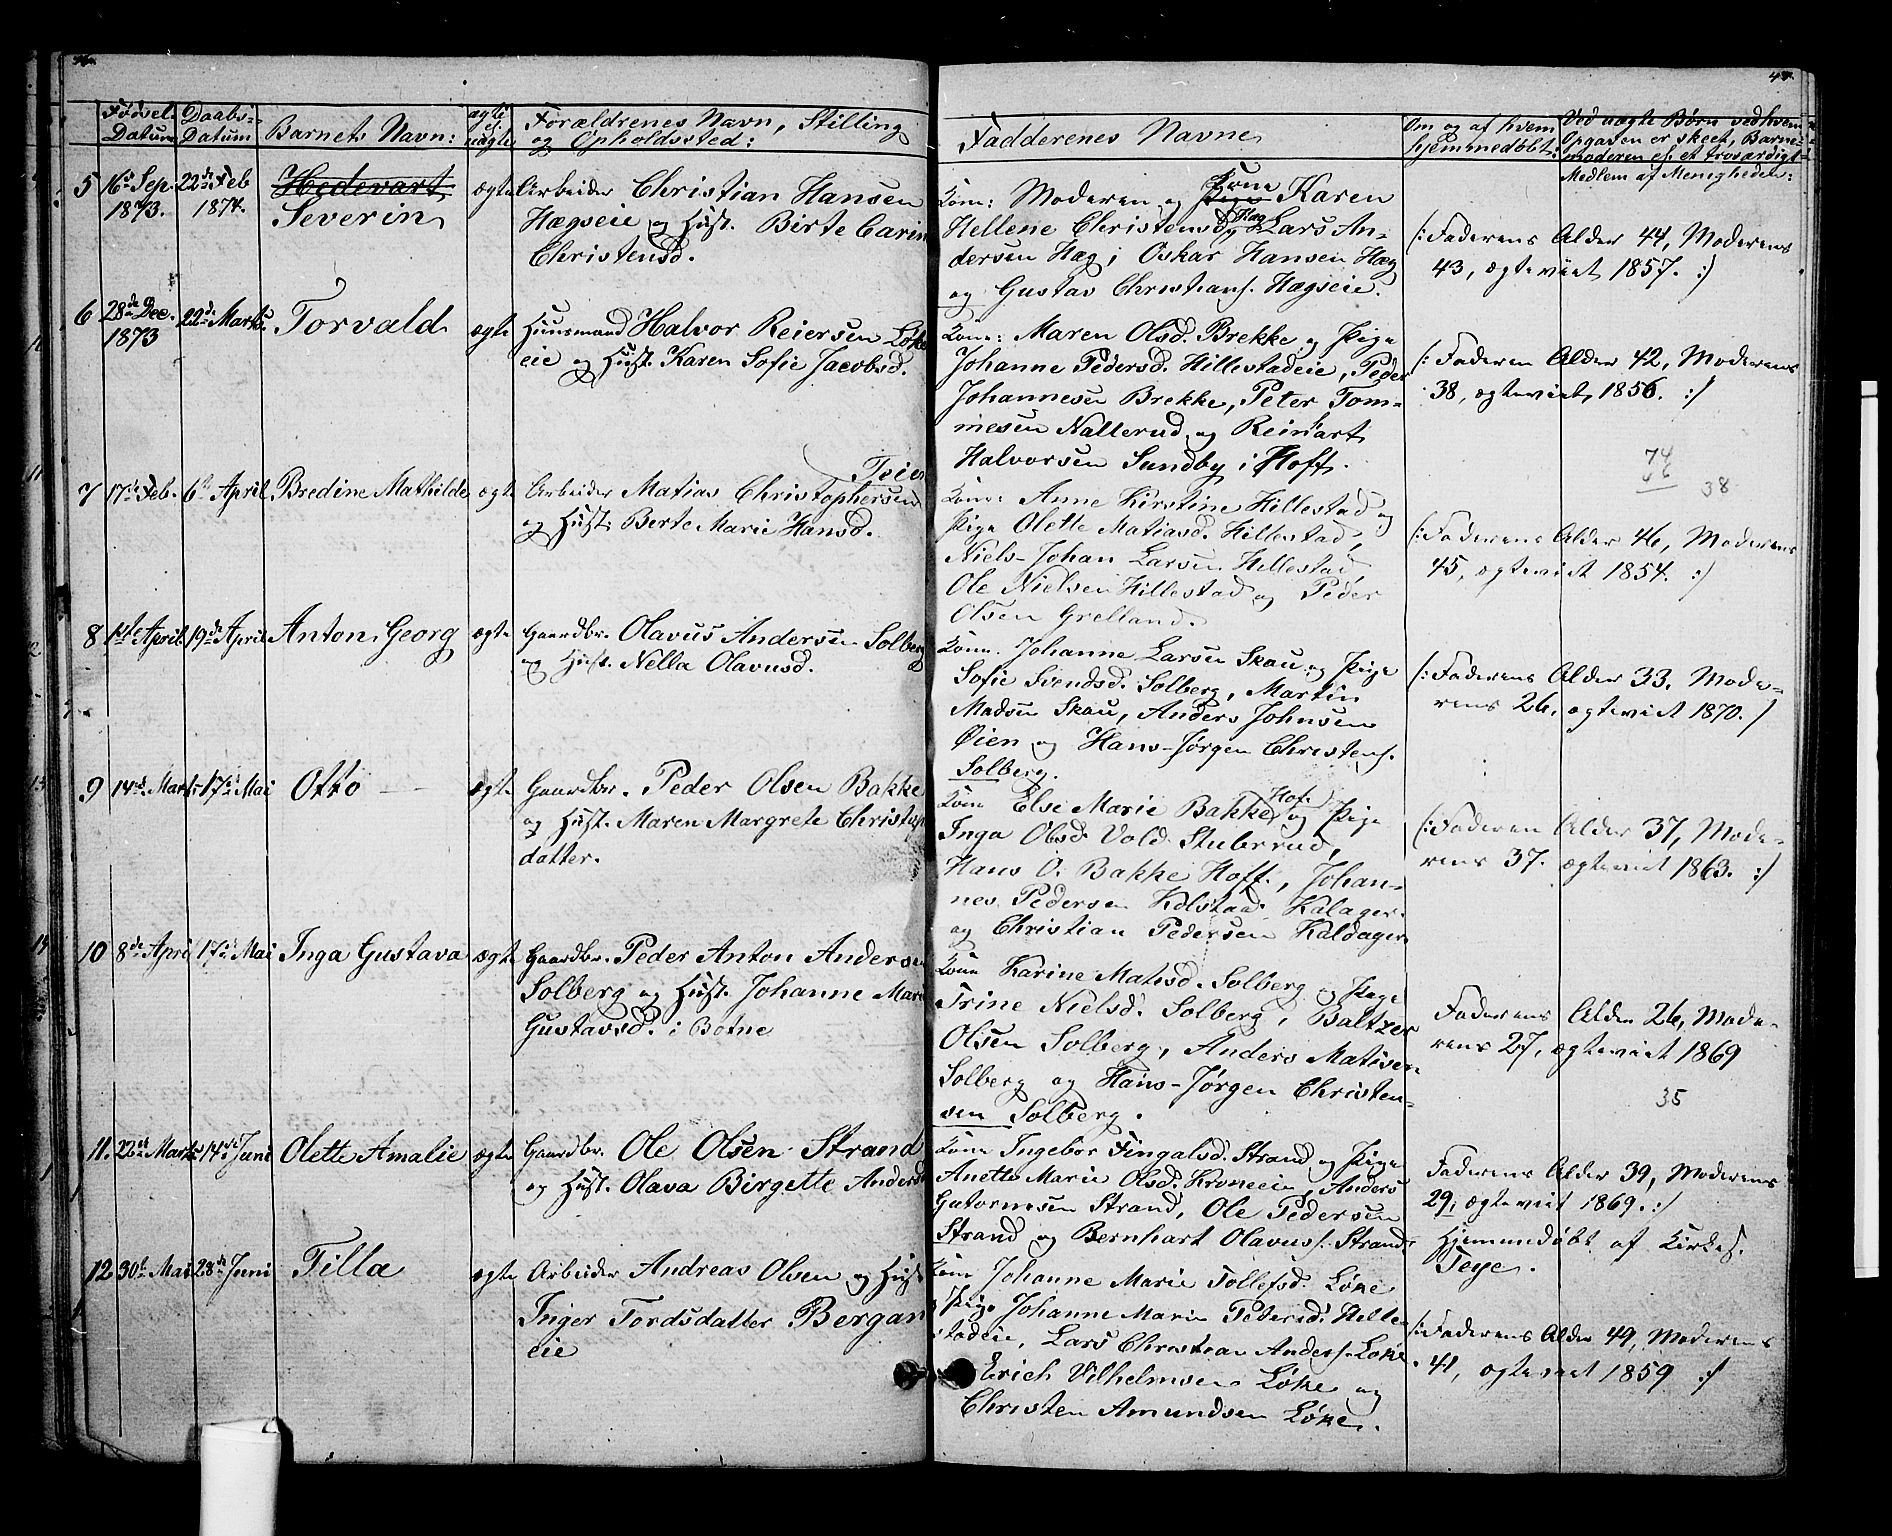 46.
Fødsel- Datum
Daabs- Datum
Barnets Navn:
ægte el. uægte
Forældrenes Navn, Stilling
og Opholdssted:
5 16de Sep. 1873. 22de Feb 1874. Hedevart Severin ægte
Arbeider Christian Hansen
Hægseie og Hust. Birte Carin
Christensd.
6 28de Dec. 1873 22de Marts Torvald ægte
Huusmand Halvor Reiersen Løke
eie og Hust. Karen Sofie Jacobsd.
7 17de Feb. 6te April Bredine Mathilde ægte
Arbeider Matias Christophersen
og Hust. Berte Marie Hansd.
8 1ste April 19de April Anton Georg ægte
Gaardbr. Olavus Andersen Solberg
og Hust. Nella Olavusd.
9 14de Marts 17de Mai Otto ægte
Gaardbr. Peder Olsen Bakke
og Hust. Maren Margrete Christop
datter.
10 8de April 17de Mai Inga Gustava ægte
Gaardbr. Peder Anton Andersen
Solberg og Hust. Johanne Mari
Gustavsd. i Botne
11. 22de Marts 14de Juni Olette Amalie ægte
Gaardbr. Ole Olsen Strand
og Hust. Olava Birgette Andersd
12 30te Mai 28de Juni Tilla ægte
Arbeider Andreas Olsen og Hust
Inger Tordsdatter Bergan
eie
47.
Fadderenes Navne
Om og af hvem
hjemmedøbt:
Ved uægte Børn ved hvem
Opgaven er skeet, Barne-
moderen ef. et troværdigt
Medlem af Menigheden:
Kone: Moderen og Pige Kone Karen
Hellene Christensd. Hæg Lars An-
dersen Hæg, Oskar Hansen Hæg
og Gustav Christians. Hægseie.
(: Faderens Alder 44, Moderens
43, ægteviet 1857. :)
Kone: Maren Olsd. Brekke og Pige
Johanne Pedersd. Hillestadeie, Peder
Johannesen Brekke, Peter Tom-
mesen Nallerud og Reinhart
Halvorsen Sundby i Hoff.
(: Faderen Alder 42, Moderens
38, ægteviet 1856. :)
74
46
38
Kone: Anne Kirstine Hillestad og
Pige Olette Matiasd. Hillestad,
Niels-Johan Larsen Hillestad,
Ole Nielsen Hillestad og Peder
Olsen Grelland.
(: Faderens Alder 46, Moderens
45, ægteviet 1854. :)
Kone. Johanne Larsen Skau og Pige
Sofie Svendsd. Solberg, Martin
Madsen Skau, Anders Johnsen
Øien og Hans-Jørgen Christens.
Solberg.
(: Faderens Alder 33. Mode-
rens 26, ægteviet 1870. :)
Kone Else Marie Bakke Hof. og Pige
Inga Olsd. Vold Stuberud,
Hans O. Bakke Hoff., Johan-
nes Pedersen Kolstad, Kalager.
og Christian Pedersen Kaldager
(: Faderen Alder 37, Mode-
rens 37. ægteviet 1863. :)
Kone Karine Matisd. Solberg og Pige
Trine Nielsd. Solberg, Baltzer
Olsen Solberg, Anders Matisen
Solberg og Hans-Jørgen Christen-
sen Solberg.
Faderens Alder 26, Mode-
rens 27, ægteviet 1869
35
Kone Ingebor Fingalsd. Strand og Pige
Anette Marie Olsd. Kroneeie, Anders
Gutormsen Strand, Ole Pedersen
Strand og Bernhart Olavuss. Strand.
Faderens Alder 39, Moderens
29, ægteviet 1869. :)
Hjemmedøbt af Kirkes.
Teye.
Kone Johanne Marie Tollefsd. Løke
Pige Johanne Marie Petersd. Hille-
stadeie, Lars Christian Anders. Løke
Erich Vilhelmsen Løke og
Christen Amundsen Løke.
(: Faderens Alder 49, Moderens
41, ægteviet 1859 :)